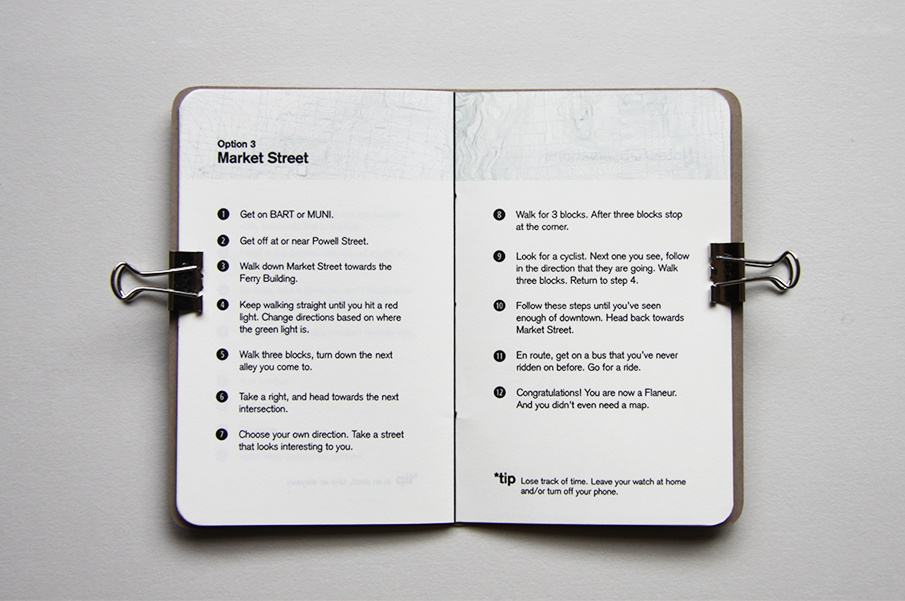 Option 3
Market Street
1 Get on BART or MUNI.
2 Get off at or near Powell Street.
3 Walk down Market Street towards the
Ferry Building.
4 Keep walking straight until you hit a red
light. Change directions based on where
the green light is.
5 Walk three blocks, turn down the next
alley you come to.
6 Take a right, and head towards the next
intersection.
7 Choose your own direction. Take a street
that looks interesting to you.
8 Walk for 3 blocks. After three blocks stop
at the corner.
9 Look for a cyclist. Next one you see, follow
in the direction that they are going. Walk
three blocks. Return to step 4.
10 Follow these steps until you've seen
enough of downtown. Head back towards
Market Street.
11 En route, get on a bus that you've never
ridden on before. Go for a ride.
12 Congratulations! You are now a Flaneur.
And you didn't even need a map.
*tip Lose track of time. Leave your watch at home
and/or turn off your phone.